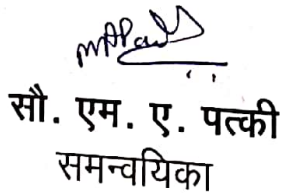 सौ. एम. ए. पत्की
समन्वयिका